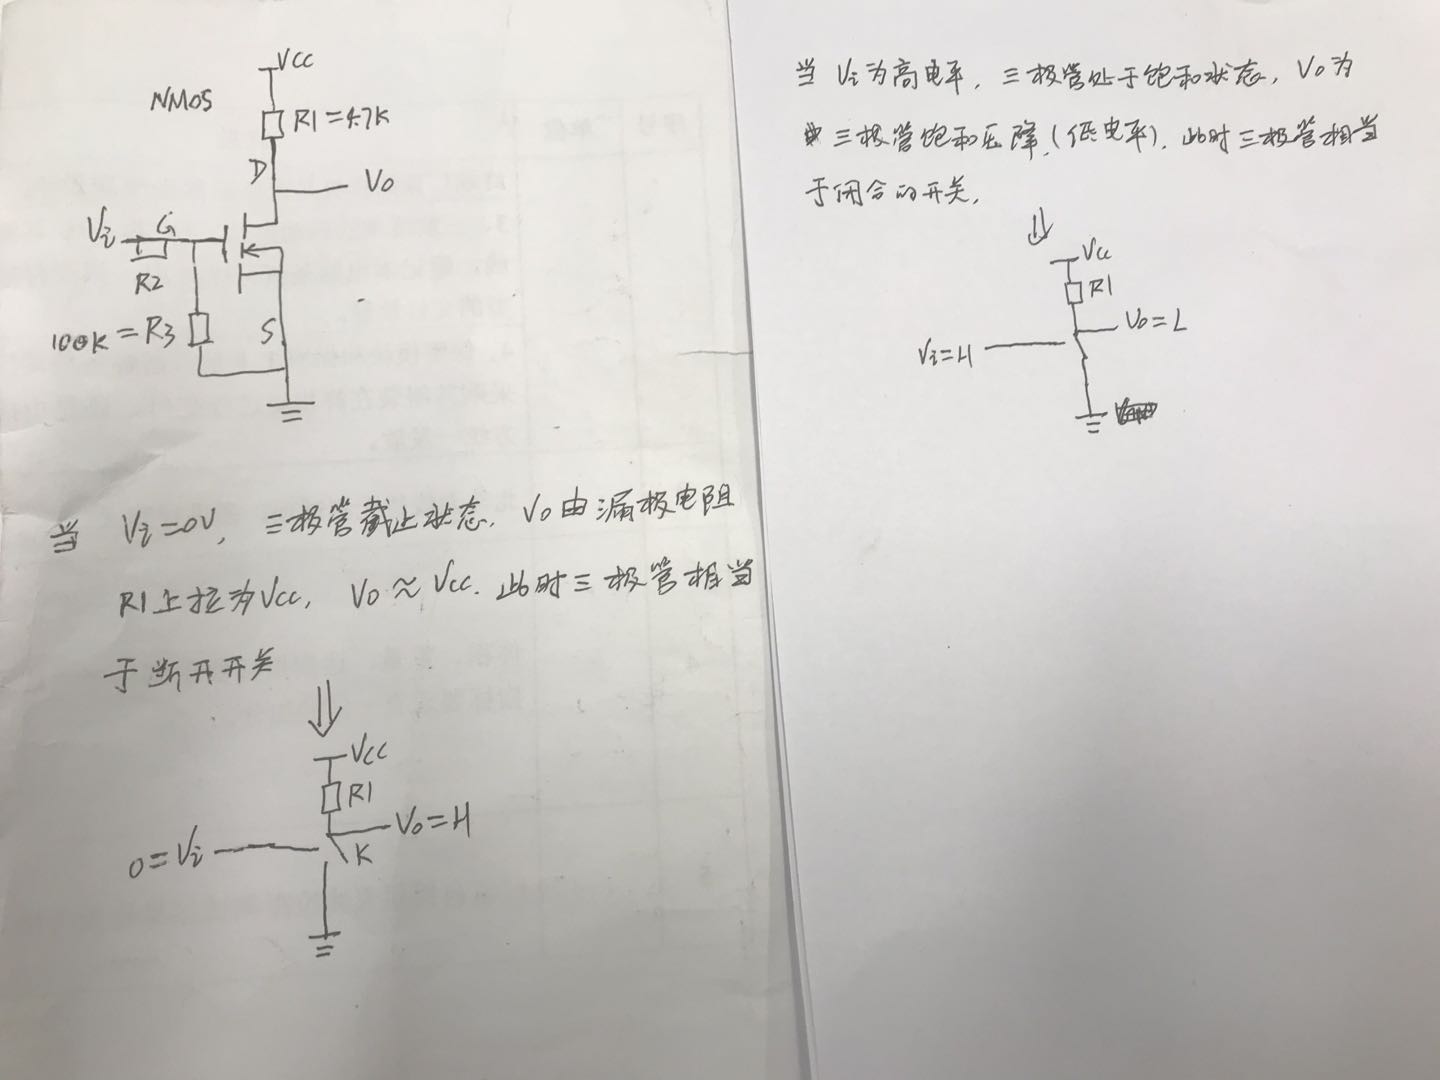 VCC
NMOS
R1=4.7K
D
Vo
Vi
G
R2
100K=R3
S
当 Vi=0V, 三极管截止状态, Vo由漏极电阻
R1上拉为Vcc, Vo≈Vcc. 此时三极管相当
于断开开关
VCC
R1
Vo=H
0=Vi
K
当 Vi为高电平, 三极管处于饱和状态, Vo为
三极管饱和压降,(低电平), 此时三极管相当
于闭合的开关,
Vcc
R1
Vo=L
Vi=H